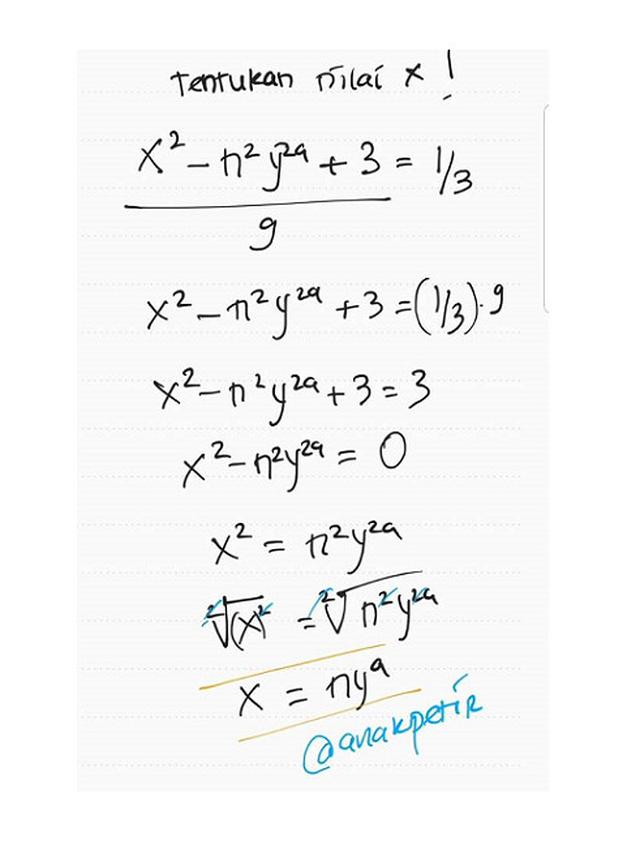 Tentukan nilai x !
x² - n²y²ᵃ + 3 = 1/3
9
x² - n²y²ᵃ + 3 = (1/3).9
x² - n²y²ᵃ + 3 = 3
x² - n²y²ᵃ = 0
x² = n²y²ᵃ
²√(x)² = ²√n²y²ᵃ
x = nyᵃ
@anakpetir